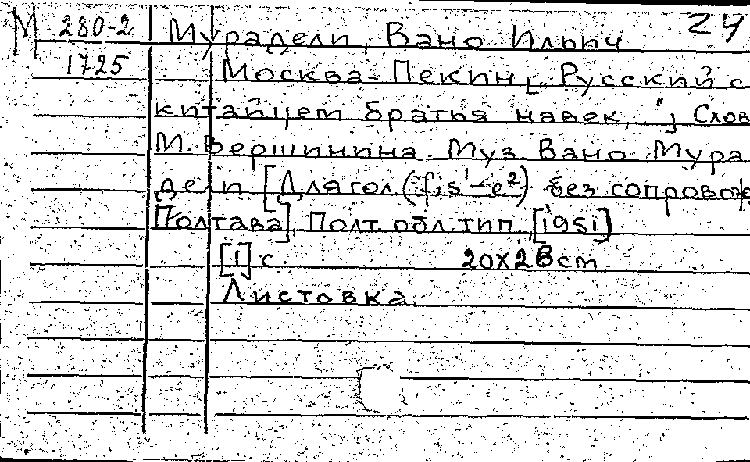 М 280-2 Мурадели, Вано Ильич 24
1725 Москва-Пекин [„Русский с
китайцем братья навек..."] Слов
М. Вершинина. Муз. Вано Мура
дели [Для гол. (fis¹-e²) без сопровож
Полтава], Полт. обл. тип., [1951]
[1] с. 20х28 cm
Листовка.